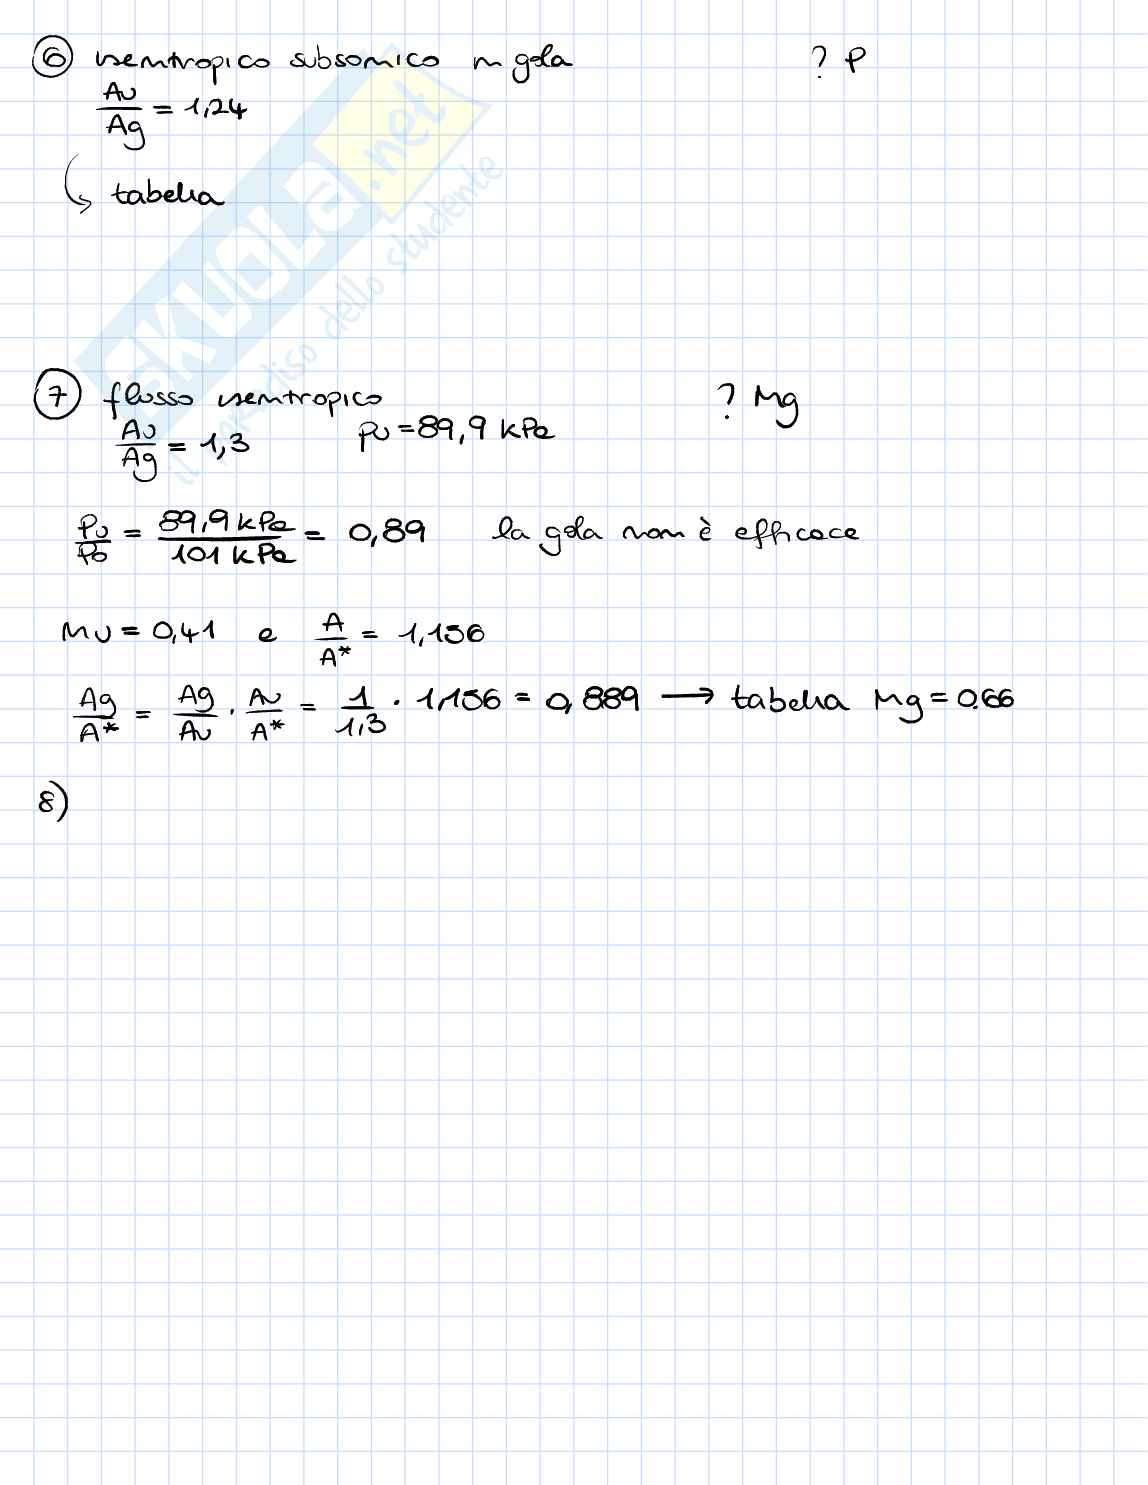 6 isentropico subsonico in gola ? P
Au/Ag = 1,24
tabella
SKUOLA.net
il paradiso dello studente
7 flusso isentropico ? Mg
Au/Ag = 1,3 pu = 89,9 kPa
Pu/Po = 89,9 kPa/101 kPa = 0,89 la gola non è efficace
Mu = 0,41 e A/A* = 1,156
Ag/A* = Ag/Au · Au/A* = 1/1,3 · 1,156 = 0,889 → tabella Mg = 0.66
8)